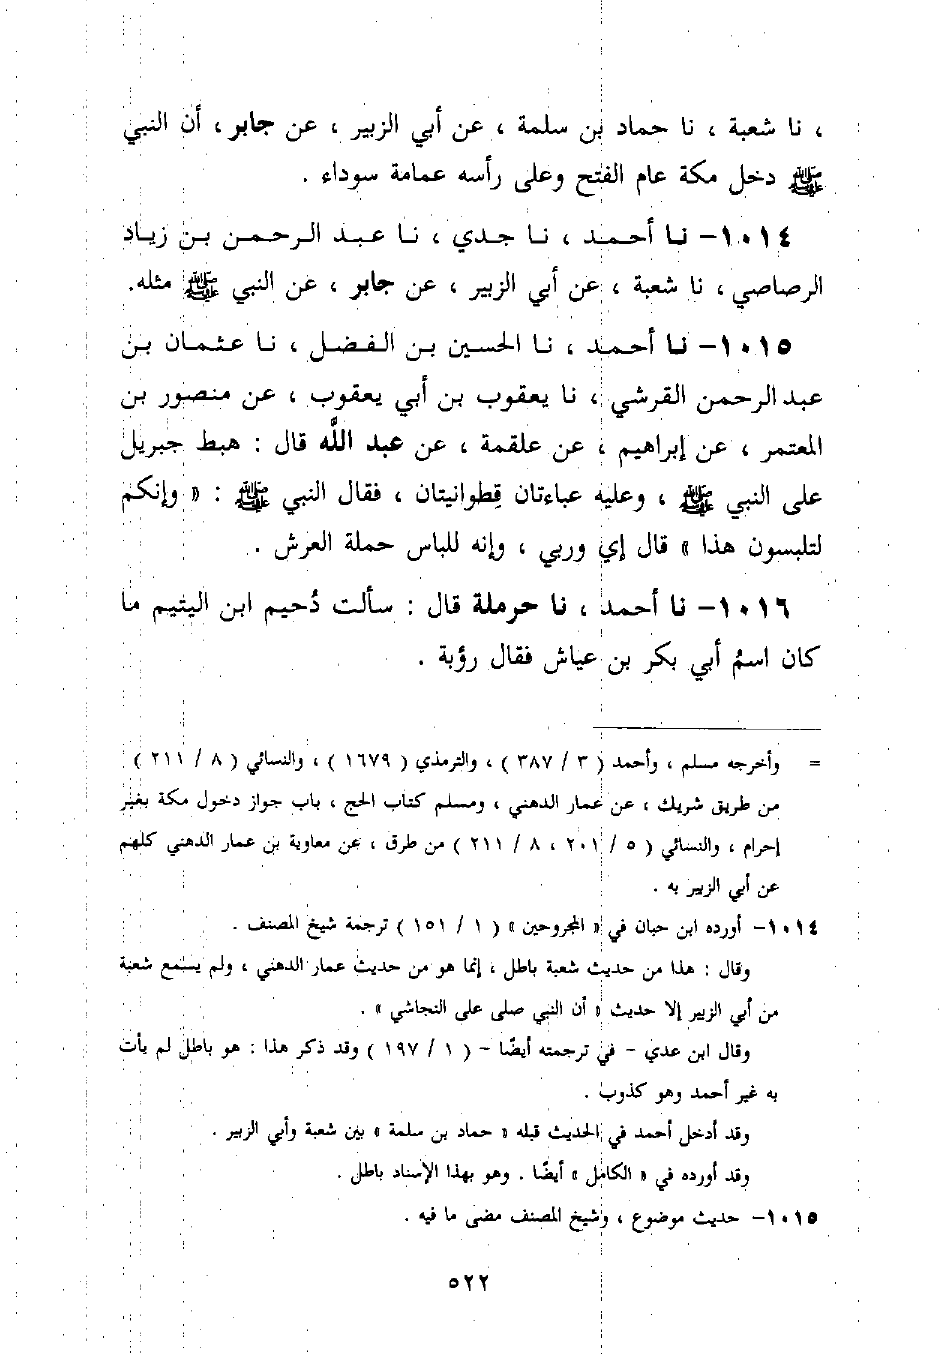 ، نا شعبة ، نا حماد بن سلمة ، عن أبي الزبير ، عن جابر ، أن النبي
ﷺ دخل مكة عام الفتح وعلى رأسه عمامة سوداء .
١٠١٤- نـا أحـمـد ، نـا جـدي ، نـا عـبـد الـرحـمـن بـن زيـاد
الرصاصي ، نا شعبة ، عن أبي الزبير ، عن جابر ، عن النبي ﷺ مثله.
١٠١٥- نـا أحـمـد ، نـا الحسين بـن الـفـضل ، نـا عـثـمـان بـن
عبد الرحمن القرشي ، نا يعقوب بن أبي يعقوب ، عن منصور بن
المعتمر ، عن إبراهيم ، عن علقمة ، عن عبد اللَّه قال : هبط جبريل
على النبي ﷺ ، وعليه عباءتان قِطوانيتان ، فقال النبي ﷺ : « وإنكم
لتلبسون هذا » قال إي وربي ، وإنه للباس حملة العرش .
١٠١٦- نا أحمد ، نا حرملة قال : سألت دُحيم ابن اليتيم ما
كان اسمُ أبي بكر بن عياش فقال رؤبة .
= وأخرجه مسلم ، وأحمد ( ٣ / ٣٨٧ ) ، والترمذي ( ١٦٧٩ ) ، والنسائي ( ٨ / ٢١١ )
من طريق شريك ، عن عمار الدهني ، ومسلم كتاب الحج ، باب جواز دخول مكة بغير
إحرام ، والنسائي ( ٥ / ٢٠١ ، ٨ / ٢١١ ) من طرق ، عن معاوية بن عمار الدهني كلهم
عن أبي الزبير به .
١٠١٤- أورده ابن حبان في « المجروحين » ( ١ / ١٥١ ) ترجمة شيخ المصنف .
وقال : هذا من حديث شعبة باطل ، إنما هو من حديث عمار الدهني ، ولم يسمع شعبة
من أبي الزبير إلا حديث « أن النبي صلى على النجاشي » .
وقال ابن عدي – في ترجمته أيضًا – ( ١ / ١٩٧ ) وقد ذكر هذا : هو باطل لم يأت
به غير أحمد وهو كذوب .
وقد أدخل أحمد في الحديث قبله « حماد بن سلمة » بين شعبة وأبي الزبير .
وقد أورده في « الكامل » أيضًا . وهو بهذا الإسناد باطل .
١٠١٥- حديث موضوع ، وشيخ المصنف مضى ما فيه .
٥٢٢